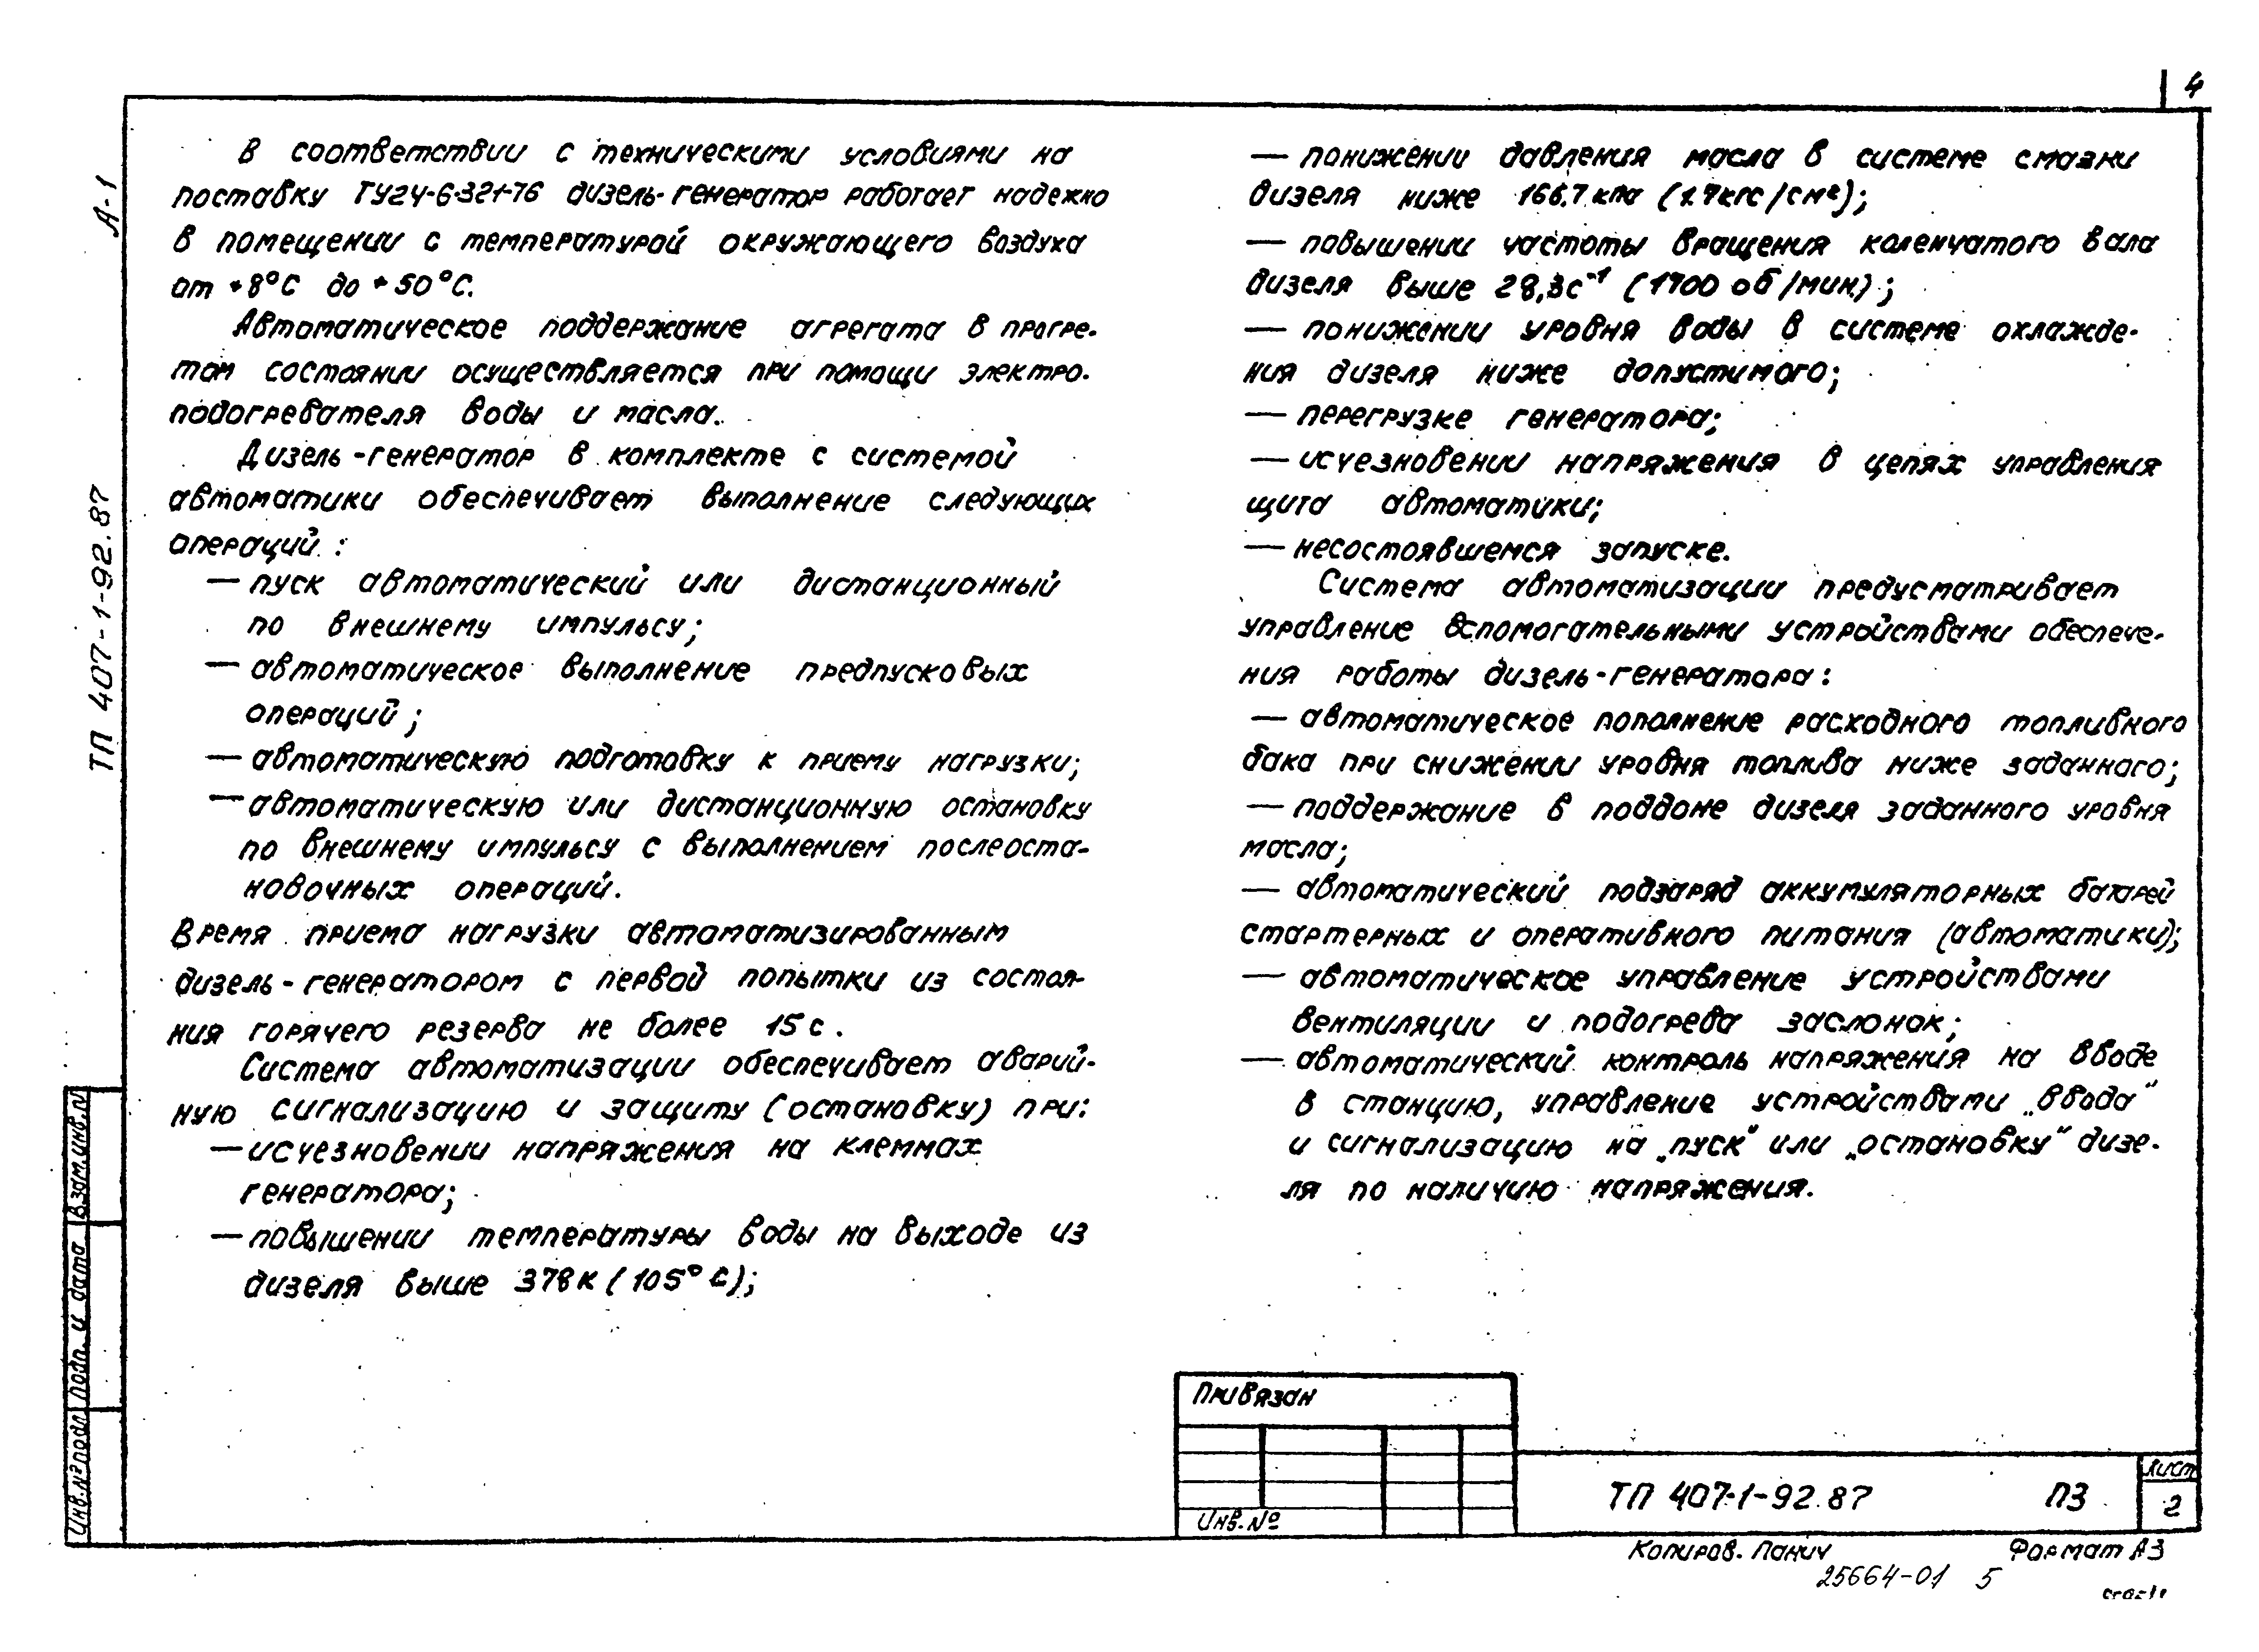 4
А-1
ТП 407-1-92.87
В соответствии с техническими условиями на
поставку ТУ24-6-321-76 дизель-генератор работает надежно
в помещении с температурой окружающего воздуха
от +8°С до +50°С.
Автоматическое поддержание агрегата в прогре-
том состоянии осуществляется при помощи электро-
подогревателя воды и масла.
Дизель-генератор в комплекте с системой
автоматики обеспечивает выполнение следующих
операций:
— пуск автоматический или дистанционный
по внешнему импульсу;
— автоматическое выполнение предпусковых
операций;
— автоматическую подготовку к приему нагрузки;
— автоматическую или дистанционную остановку
по внешнему импульсу с выполнением послеоста-
новочных операций.
Время приема нагрузки автоматизированным
дизель-генератором с первой попытки из состоя-
ния горячего резерва не более 15 с.
Система автоматизации обеспечивает аварий-
ную сигнализацию и защиту (остановку) при:
— исчезновении напряжения на клеммах
генератора;
— повышении температуры воды на выходе из
дизеля выше 378К (105°С);
— понижении давления масла в системе смазки
дизеля ниже 166,7 кПа (1.7кгс/см²);
— повышении частоты вращения коленчатого вала
дизеля выше 28,3с⁻¹ (1700 об/мин.);
— понижении уровня воды в системе охлажде-
ния дизеля ниже допустимого;
— перегрузке генератора;
— исчезновении напряжения в цепях управления
щита автоматики;
— несостоявшемся запуске.
Система автоматизации предусматривает
управление вспомогательными устройствами обеспече-
ния работы дизель-генератора:
— автоматическое пополнение расходного топливного
бака при снижении уровня топлива ниже заданного;
— поддержание в поддоне дизеля заданного уровня
масла;
— автоматический подзаряд аккумуляторных батарей
стартерных и оперативного питания (автоматики);
— автоматическое управление устройствами
вентиляции и подогрева заслонок;
— автоматический контроль напряжения на вводе
в станцию, управление устройствами „ввода"
и сигнализацию на „пуск" или „остановку" дизе-
ля по наличию напряжения.
Взам.инв.№
Подп. и дата
Инв.№подл
Привязан
Инв.№
ТП 407-1-92.87
ПЗ
Лист
2
Копиров. Панич
Формат А3
25664-01 5